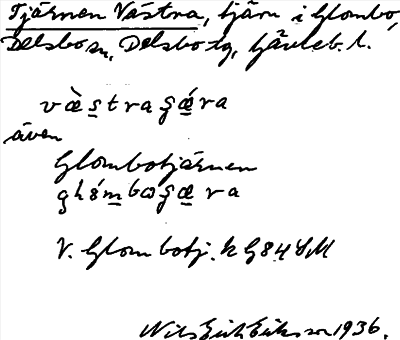 Tjärnen Västra, tjärn i Glombo,
Delsbo sn, Delsbo tg, Gävleb. l.
även
Glombotjärnen
V. Glombotj. k G84 SM
Nils Erik Eriksson 1936.